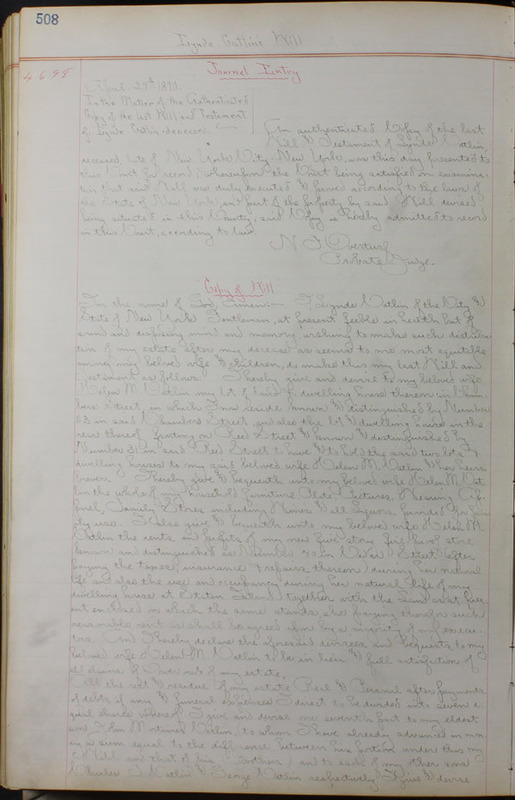 508
Lynde Catlin's Will
4698
Journal Entry
April 29th 1891.
In the Matter of the Authenticated
Copy of the last Will and Testament
of Lynde Catlin deceased
An authenticated Copy of the last
Will & Testament of Lynde Catlin,
deceased, late of New York City New York, was this day presented to
this Court for record, whereupon the Court being satisfied on examina-
tion that said Will was duly executed & proved according to the laws of
the State of New York, and part of the property by said Will devised
being situated in this County, said Copy is hereby admitted to record
in this Court, according to law.
Probate Judge.
Copy of Will
In the name of God, Amen:— I Lynde Catlin of the City &
State of New York Gentleman, at present feeble in health but of
sound and disposing mind and memory wishing to make such distribu-
tion of my estate after my decease as seems to me most equitable
among my beloved wife & children, do make this my last Will and
Testament as follows I hereby give and devise to my beloved wife
Helen M. Catlin my lot of land & dwelling house thereon in Cham-
bers Street, in which I now reside known & distinguished by Number
63 in said Chambers Street, and also the lot & dwelling house in the
rear thereof fronting on Reed Street & known & distinguished by
Number 31 in said Reed Street to have & to hold the said two lots &
dwelling houses to my said beloved wife Helen M. Catlin & her heirs
forever. I hereby give & bequeath unto my beloved wife Helen M. Cat-
lin the whole of my household furniture Plate Pictures, Wearing Ap-
parel, Family Stores including Wines & all Liquors provided for fam-
ily use. I also give & bequeath unto my beloved wife Helen M.
Catlin the rents and profits of my new five story fire proof store
known and distinguished as Number Water Street (after
paying the taxes, insurance & repairs thereon) during her natural
life and also the use and occupancy during her natural life of my
dwelling house at Staten Island together with the land as at pres-
ent enclosed on which the same stands she paying therefor such
reasonable rent as shall be agreed upon by a majority of my execu-
tors. And I hereby declare the aforesaid devises and bequests to my
beloved wife Helen M. Catlin to be in lieu & full satisfaction of
all claims of Dower out of my estate.
All the rest & residue of my estate Real & Personal after payments
of debts if any & funeral expenses I direct to be divided into seven e-
qual shares whereof I give and devise one seventh part to my eldest
son John Mortimer Catlin, to whom I have already advanced in mon-
ey a sum equal to the difference between his portion under this my
Will and that of his brothers) and to each of my other sons
Charles Catlin & George Catlin respectively I give & devise